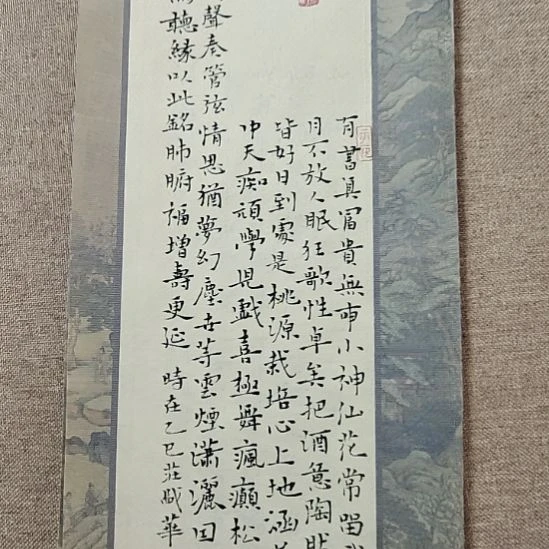 有書真富貴無事小神仙花常留
月不放人眠狂歌性卓矣把酒意陶
皆好日到處是桃源栽培心上地涵
冲天痴頑學兒戲喜極舞瘋癲松
聲奏管弦情思猶夢幻塵世等雲煙瀟灑回
聽緣以此銘肺腑福增壽更延 時在乙巳莊賦華